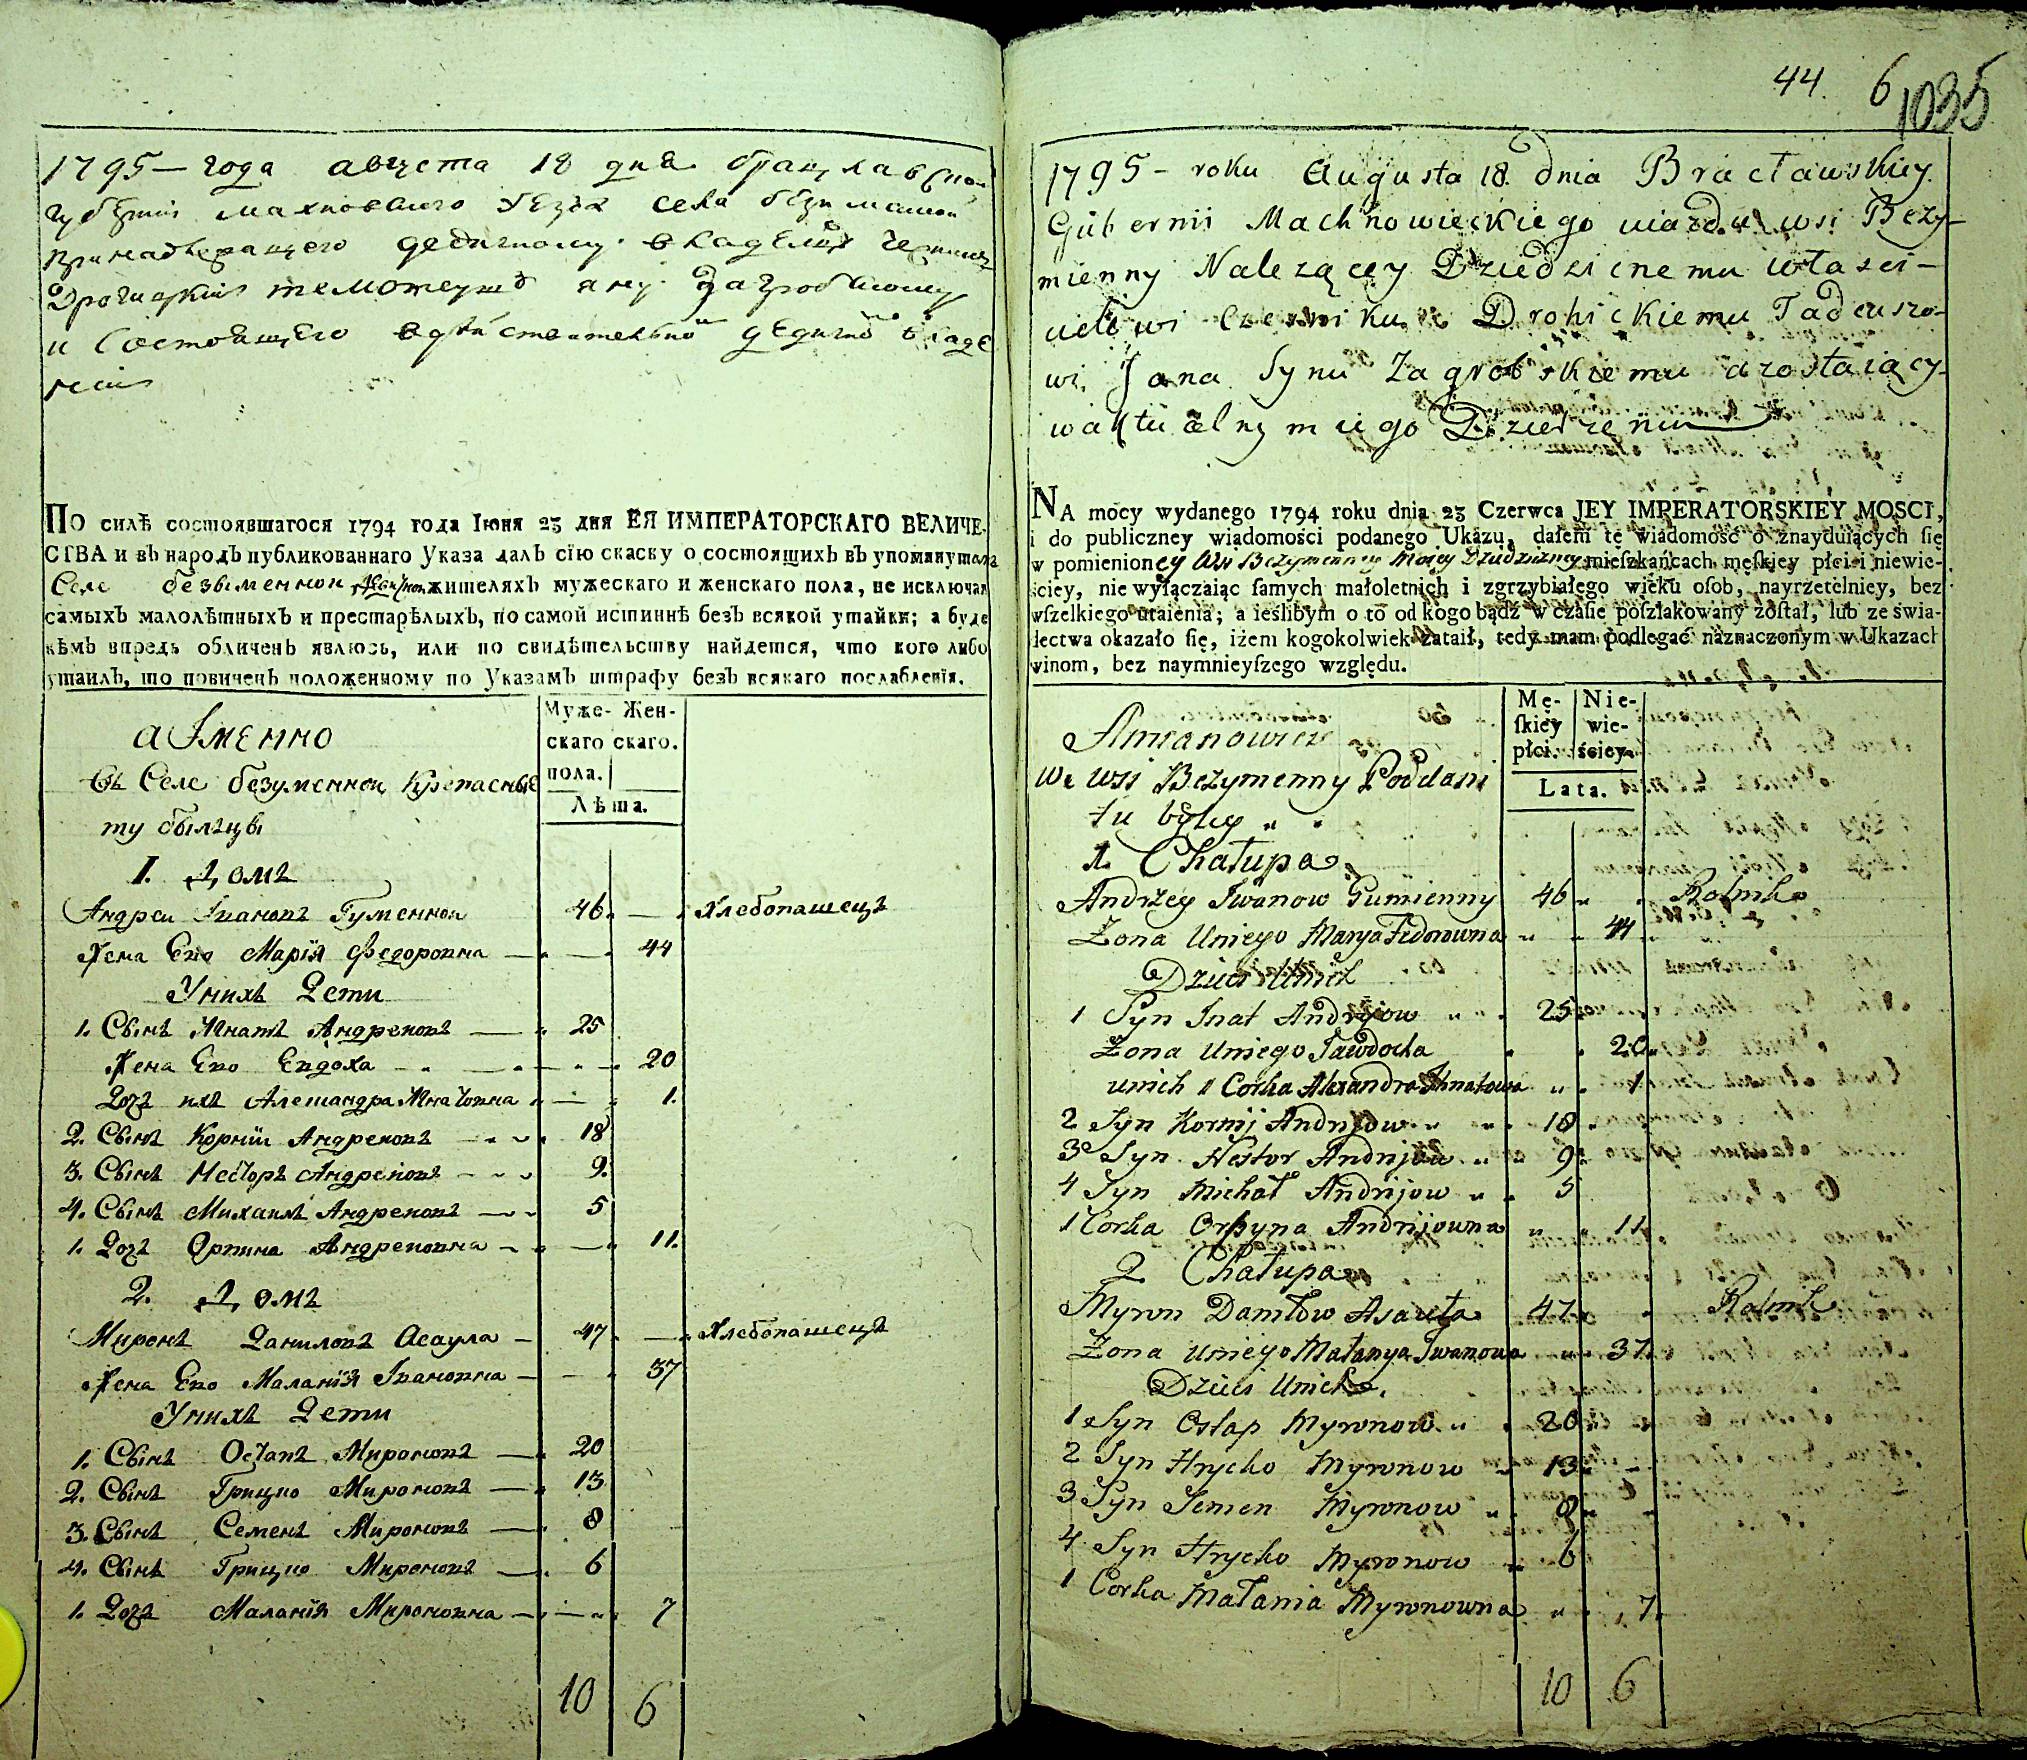 1795 – года августа 18 дня брацлавской
губернии махновского уезда села безименной
принадлежащего дедичному владельцу
и состоящего в действительном дедичном владе
нии
По силѣ состоявшагося 1794 года Iюня 23 дня ЕЯ ИМПЕРАТОРСКАГО ВЕЛИЧЕ-
СТВА и въ народъ публикованнаго Указа далъ сїю скаску о состоящихъ въ упомянутомъ
Селе безыменной жителяхъ мужескаго и женскаго пола, не исключая
самыхъ малолѣтныхъ и престарѣлыхъ, по самой истиннѣ безъ всякой утайки; а буде
кѣмъ впредь обличенъ явлюсь, или по свидѣтельству найдется, что кого либо
утаилъ, то повиненъ положенному по Указамъ штрафу безъ всякаго послабленїя.
а Именно
Муже- Жен-
скаго скаго.
пола.
Лѣта.
въ Селе безуменной Крепасные
ту былцы
1. Домъ
Андреи Iвановъ Гуменнои 46. — Хлебопашецъ
Жена Его Марїя Федоровна — 44
У нихъ Дети
1. Сынъ Игнатъ Андреювъ — 25
Жена Его Евдоха — 20
Дочь ихъ Алешандра Игнатовна — 1.
2. Сынъ Корнїи Андреювъ — 18
3. Сынъ Несторъ Андреювъ 9.
4. Сынъ Михаилъ Андреювъ — 5
1. Дочь Орпина Андреювна — 11.
2. Домъ
Миронъ Даниловъ Асаула — 47 — Хлебопашецъ
Жена Его Маланїя Iвановна — 37
У нихъ Дети
1. Сынъ Остапъ Мироновъ — 20
2. Сынъ Грицко Мироновъ — 13
3. Сынъ Семенъ Мироновъ — 8
4. Сынъ Грицко Мироновъ — 6
1. Дочь Маланїя Мироновна — 7
10 6
44. 6 1035
1795 – roku Augusta 18. dnia Bracławskiey
Gubernii Machnowieckiego uiazdu wsi Bezy-
mienny Należący Dziedzicnemu własci-
cielowi Czesniku Drohickiemu Tadeuszo-
wi Jana Synu Zagrobskiemu a zostaiący
w aktualnym iego Dzierżeniu
NA mocy wydanego 1794 roku dnia 23 Czerwca JEY IMPERATORSKIEY MOSCI,
i do publiczney wiadomości podanego Ukazu, dałem tę wiadomość o znayduiących ſię
w pomienioney Wsi Bezymenney moiey Dziedziczney mieſzkańcach męſkiey płci i niewie-
ściey, nie wyłączaiąc ſamych małoletnich i zgrzybiałego wieku oſob, nayrzetelniey, bez
wſzelkiego utaienia; a ieślibym o to od kogo bądź w czaſie poſzlakowany zoſtał, lub ze świa-
dectwa okazało ſię, iżem kogokolwiek zataił, tedy mam podlegać naznaczonym w Ukazach
winom, bez naymnieyſzego względu.
Mę-
ſkiey
płci.
Nie-
wie-
ściey.
Lata.
Amianowicie
We wsi Bezymenny Poddani
tu bylcy
1. Chałupa
Andrzey Iwanow Gumienny 46 Rolnik
Żona Uniego Marya Fedorowna 44
Dzieci Unich
1 Syn Inat Andrijow 25
Żona Uniego Jawdocha 20
unich 1 Corka Alexandra Ihnatowna 1
2 Syn Kornij Andrijow 18
3 Syn Nestor Andrijow 9
4 Syn Michał Andrijow 5
1 Corka Orpyna Andrijowna 11
2. Chałupa
Myron Daniłow Asauła 47 Rolnik
Żona Uniego Małanya Iwanowa 37
Dzieci Unich.
1 Syn Ostap Myronow 20
2 Syn Hrycko Myronow 13
3 Syn Semen Myronow 8
4 Syn Hrycko Myronow 6
1 Corka Małania Myronowna 7
10 6